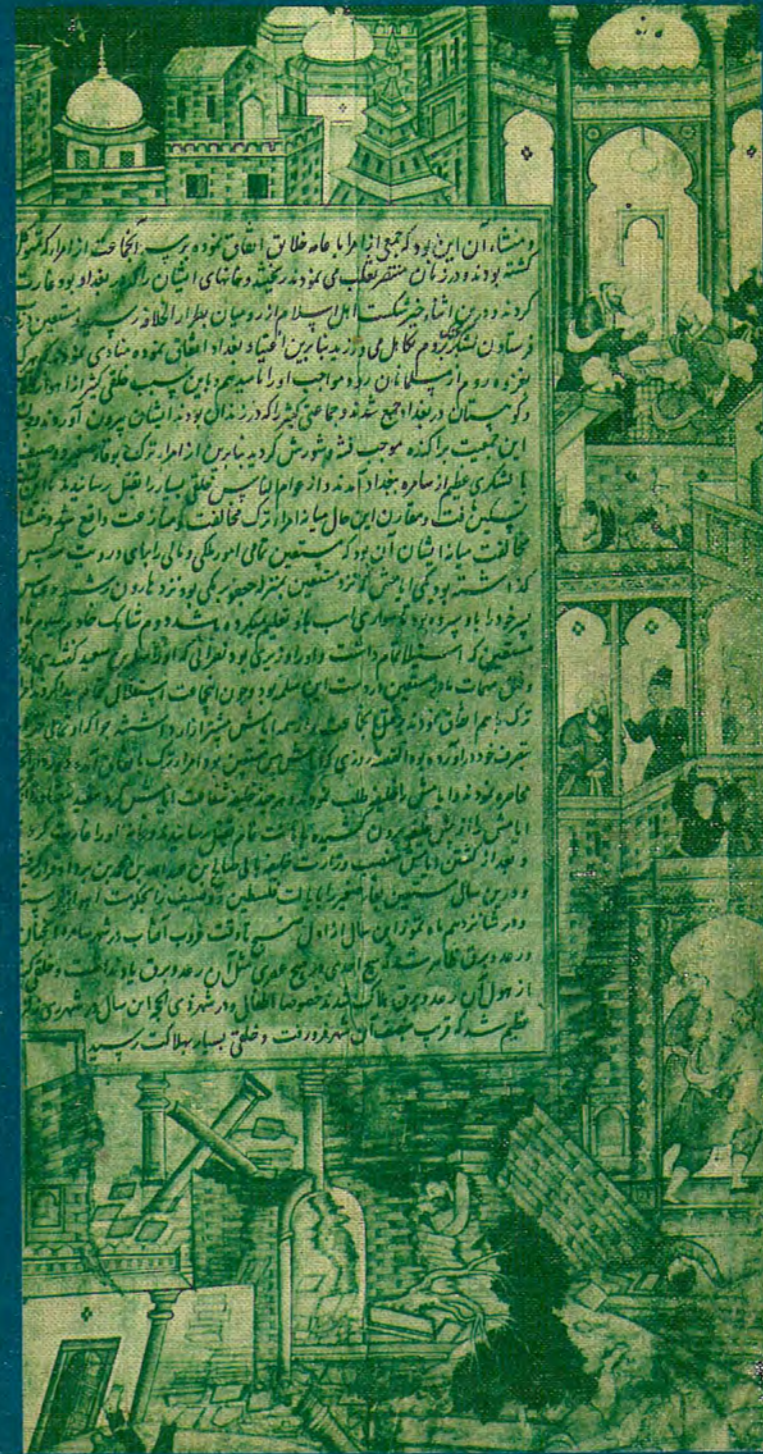 و منشاء آن این بود که جمعی از امرا با عامه خلایق اتفاق نموده بر سر آنجماعت از امرا که
کشته بودند و در زمان منتصر تغلب می نمودند ریختند و خانهای ایشان را که در بغداد بود غارت
کردند و درین اثنا خبر شکست اهل اسلام از رومیان بدار الخلافه رسید و مستعین
فرستادن لشکر بجنگ روم تکاهل می ورزید بنابرین اغنیاء بغداد اتفاق نموده منادی نمودند که هر که
بغزوه روم از مسلمانان رود مواجب او را ما میدهیم باین سبب خلقی کثیر از
و کوهستان در بغداد جمع شدند و جماعتی کثیر را که در زندان بودند ایشان بیرون آوردند
این جمعیت پراکنده موجب فتنه و شورش گردید بنابرین از امرار ترک بوغاء صغیر و وصیف
با لشکری عظیم از سامره ببغداد آمدند و از عوام الناس خلقی بسیار را بقتل رسانیدند تا این
تسکین یافت و مقارن این حال میانه امراء ترک مخالفت و منازعت واقع شد و منشاء
مخالفت میانه ایشان آن بود که مستعین تمامی امور ملکی و مالی را بر رای و رویت سه کس
کذاشته بود یکی اتامش که نزد مستعین بمنزله جعفر برمکی بود نزد هارون رشید و
پسر خود را باو سپرده بود تا سواری اسب باو تعلیم میکرده باشد دوم شاهک خادم سیوم
مستعین که استیلا تمام داشت و او را وزیری بود نصرانی که او را سلمه بن سعید گفتندی
و فتق مهمات مادر مستعین در دست این سلمه بود و چون این جماعت استقلال تمام پیدا کردند
ترک باهم اتفاق نمودند و بقتل آنجماعت و از همه اتامش بیشتر آزار داشتند چرا که او تمامی
بتصرف خود در آورده بود القصه روزی که اتامش پیش مستعین بود امراء ترک
محاصره نمودند و اتامش را از خلیفه طلب نمودند و هر چند خلیفه شفاعت اتامش کرد مفید نیفتاد
اتامش را از پیش خلیفه بیرون کشیده بقتل رسانیدند و خانه او را غارت کردند
و بعد از کشتن اتامش منصب وزارت خلیفه بابی صالح بن عبد الله بن محمد بن یزداد قرار گرفت
و درین سال مستعین بغاء صغیر را بایالت فلسطین و وصیف را بحکومت اهواز
و در شانزدهم ماه تموز این سال از اول صبح تا وقت غروب آفتاب در شهر سامره
و رعد و برق ظاهر شد که هیچ احدی در هیچ عهدی مثل آن رعد و برق یاد نداشت و خلقی
از هول آن رعد و برق هلاک شدند خصوصا اطفال و در شهر ذی الحجه این سال در شهر ری
عظیم شد که قریب بنصف آن شهر فرو رفت و خلقی بسیار بهلاکت رسید